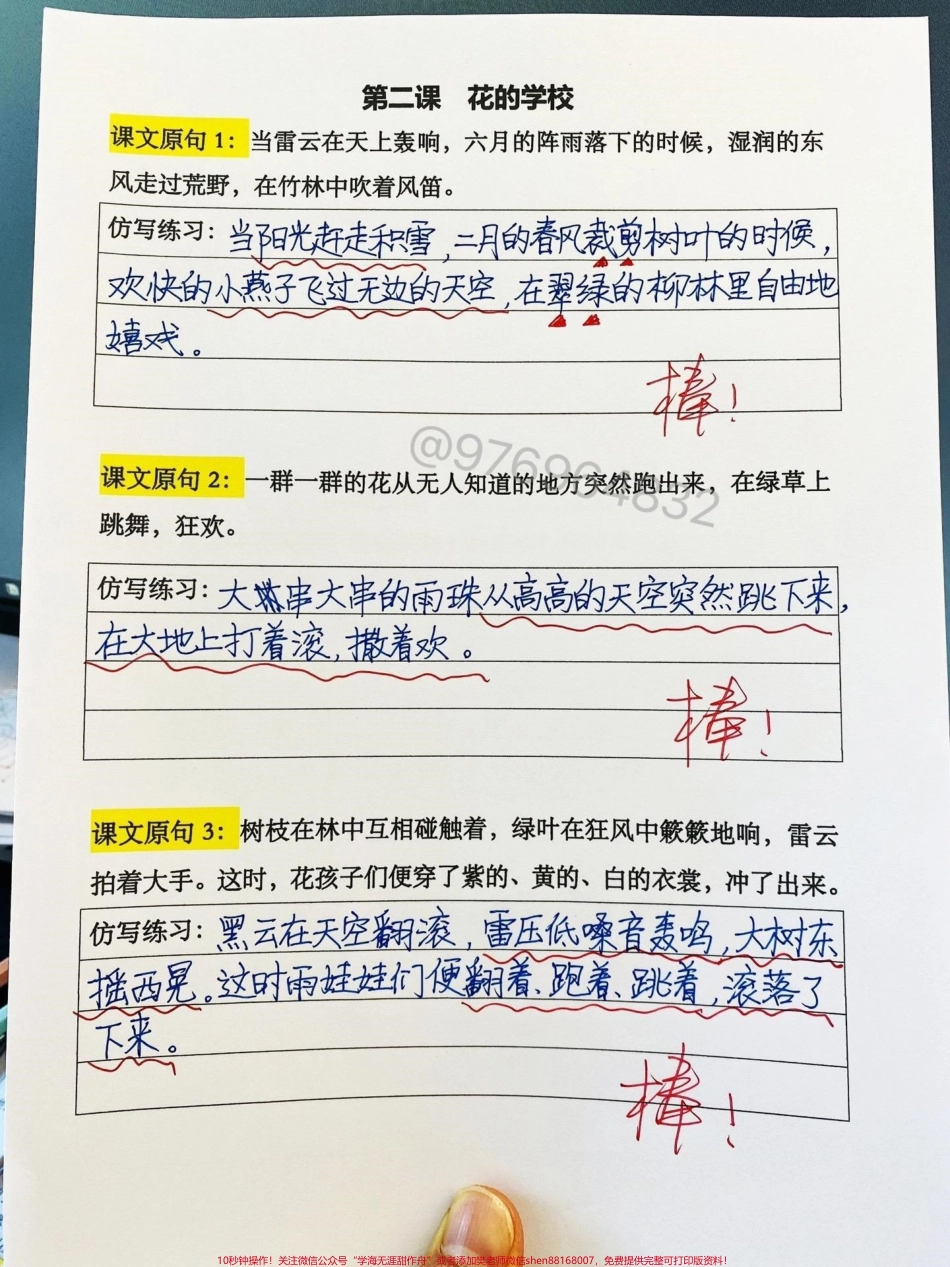 第二课　花的学校
课文原句 1：当雷云在天上轰响，六月的阵雨落下的时候，湿润的东
风走过荒野，在竹林中吹着风笛。
仿写练习：当阳光赶走积雪，二月的春风裁剪树叶的时候，
欢快的小燕子飞过无边的天空，在翠绿的柳林里自由地
嬉戏。
棒！
@976964832
课文原句 2：一群一群的花从无人知道的地方突然跑出来，在绿草上
跳舞，狂欢。
仿写练习：大串大串的雨珠从高高的天空突然跳下来，
在大地上打着滚，撒着欢。
棒！
课文原句 3：树枝在林中互相碰触着，绿叶在狂风中簌簌地响，雷云
拍着大手。这时，花孩子们便穿了紫的、黄的、白的衣裳，冲了出来。
仿写练习：黑云在天空翻滚，雷压低嗓音轰鸣，大树东
摇西晃。这时雨娃娃们便翻着、跑着、跳着，滚落了
下来。
棒！
10秒钟操作！关注微信公众号“学海无涯甜作舟”或者添加樊老师微信shen88168007，免费提供完整可打印版资料！